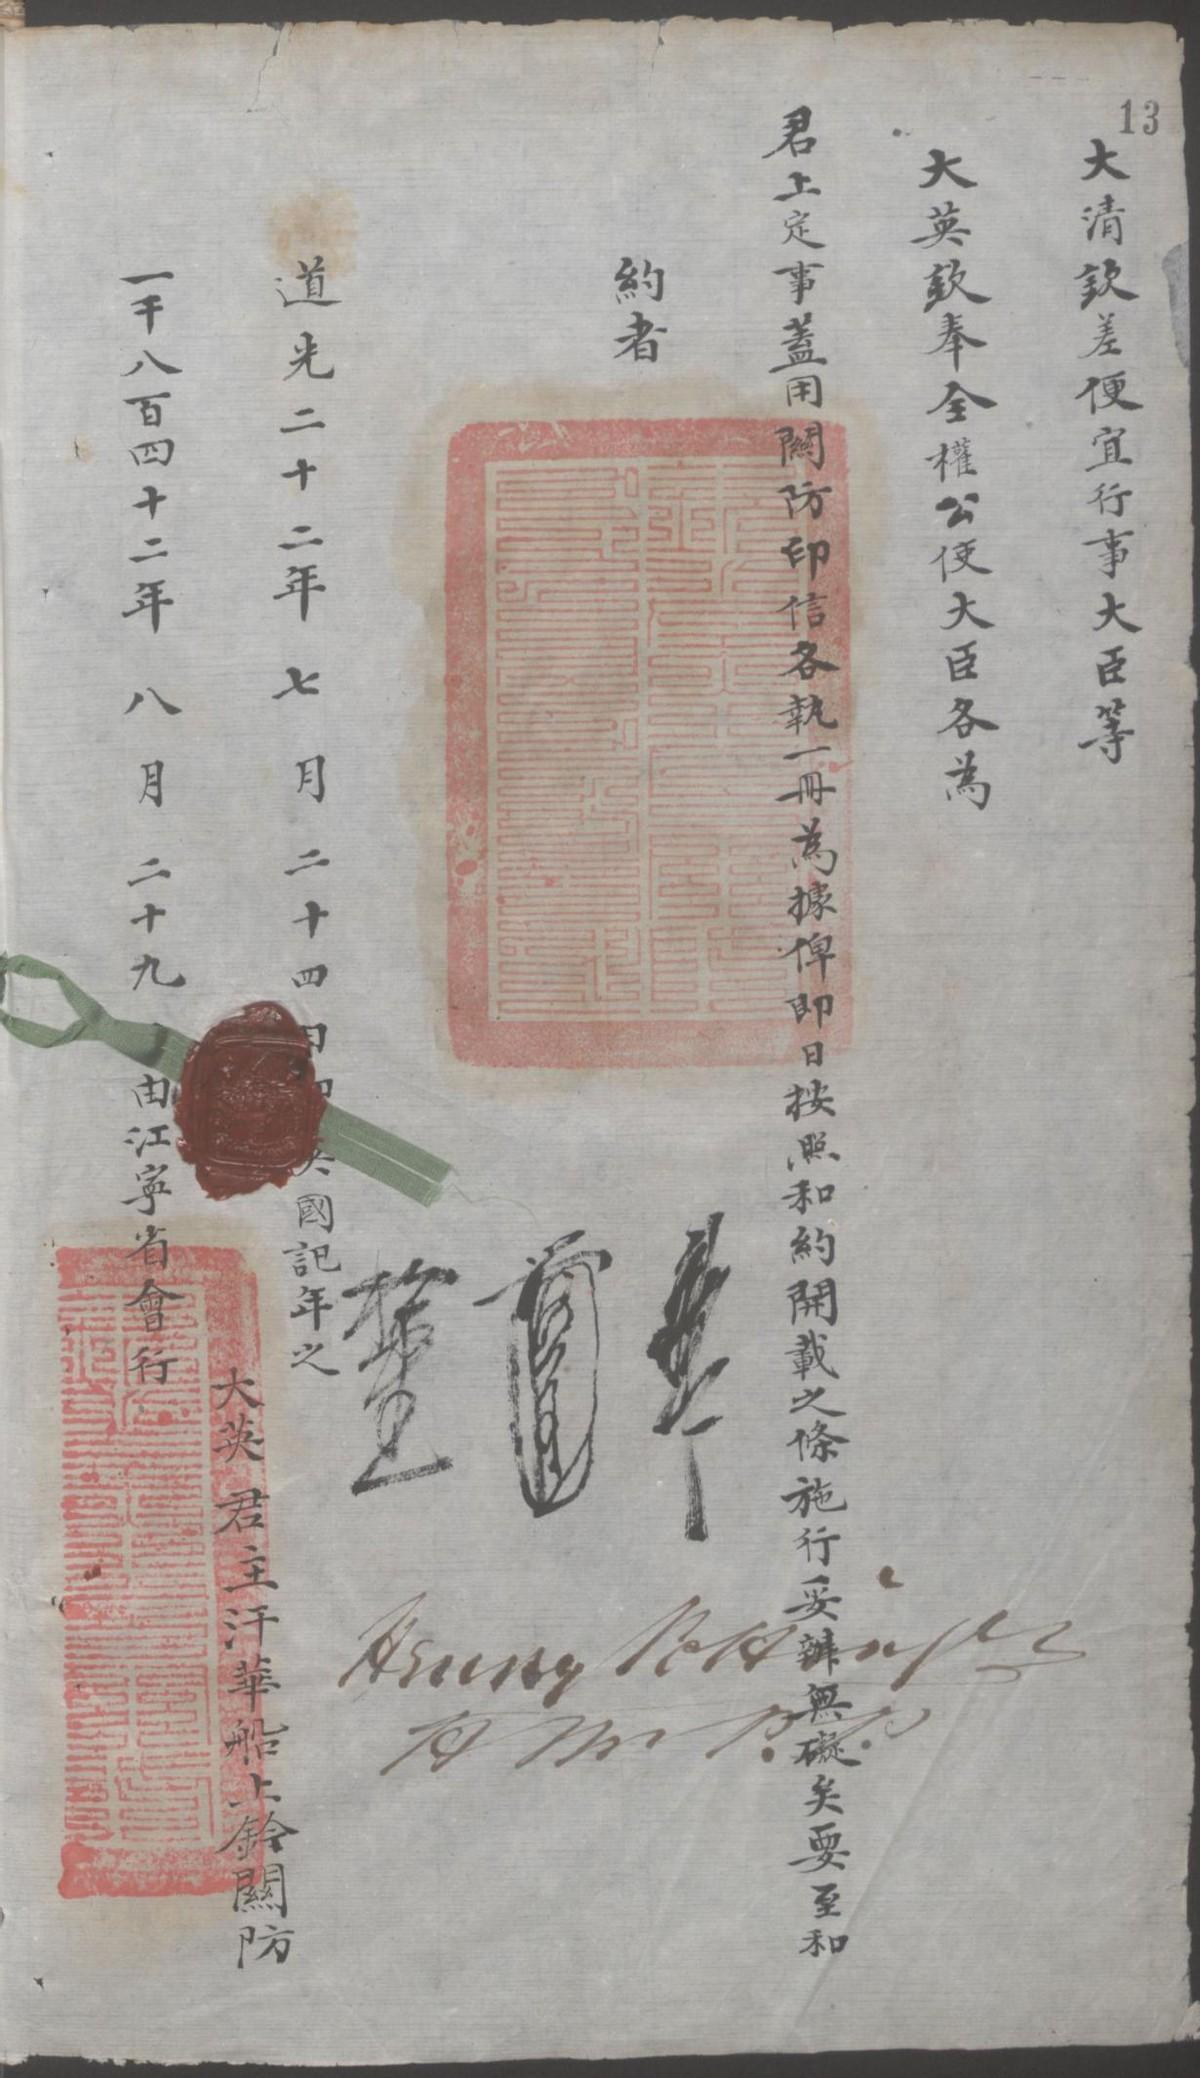 13
大清欽差便宜行事大臣等
大英欽奉全權公使大臣各為
君上定事蓋用關防印信各執一冊為據俾即日按照和約開載之條施行妥辦無礙矣要至和
約者
道光二十二年 七 月 二十四日即英國記年之
一千八百四十二年 八 月 二十九 由江寧省會行
大英 君主汗華船上鈐關防
Henry Pottinger
H M P. P.